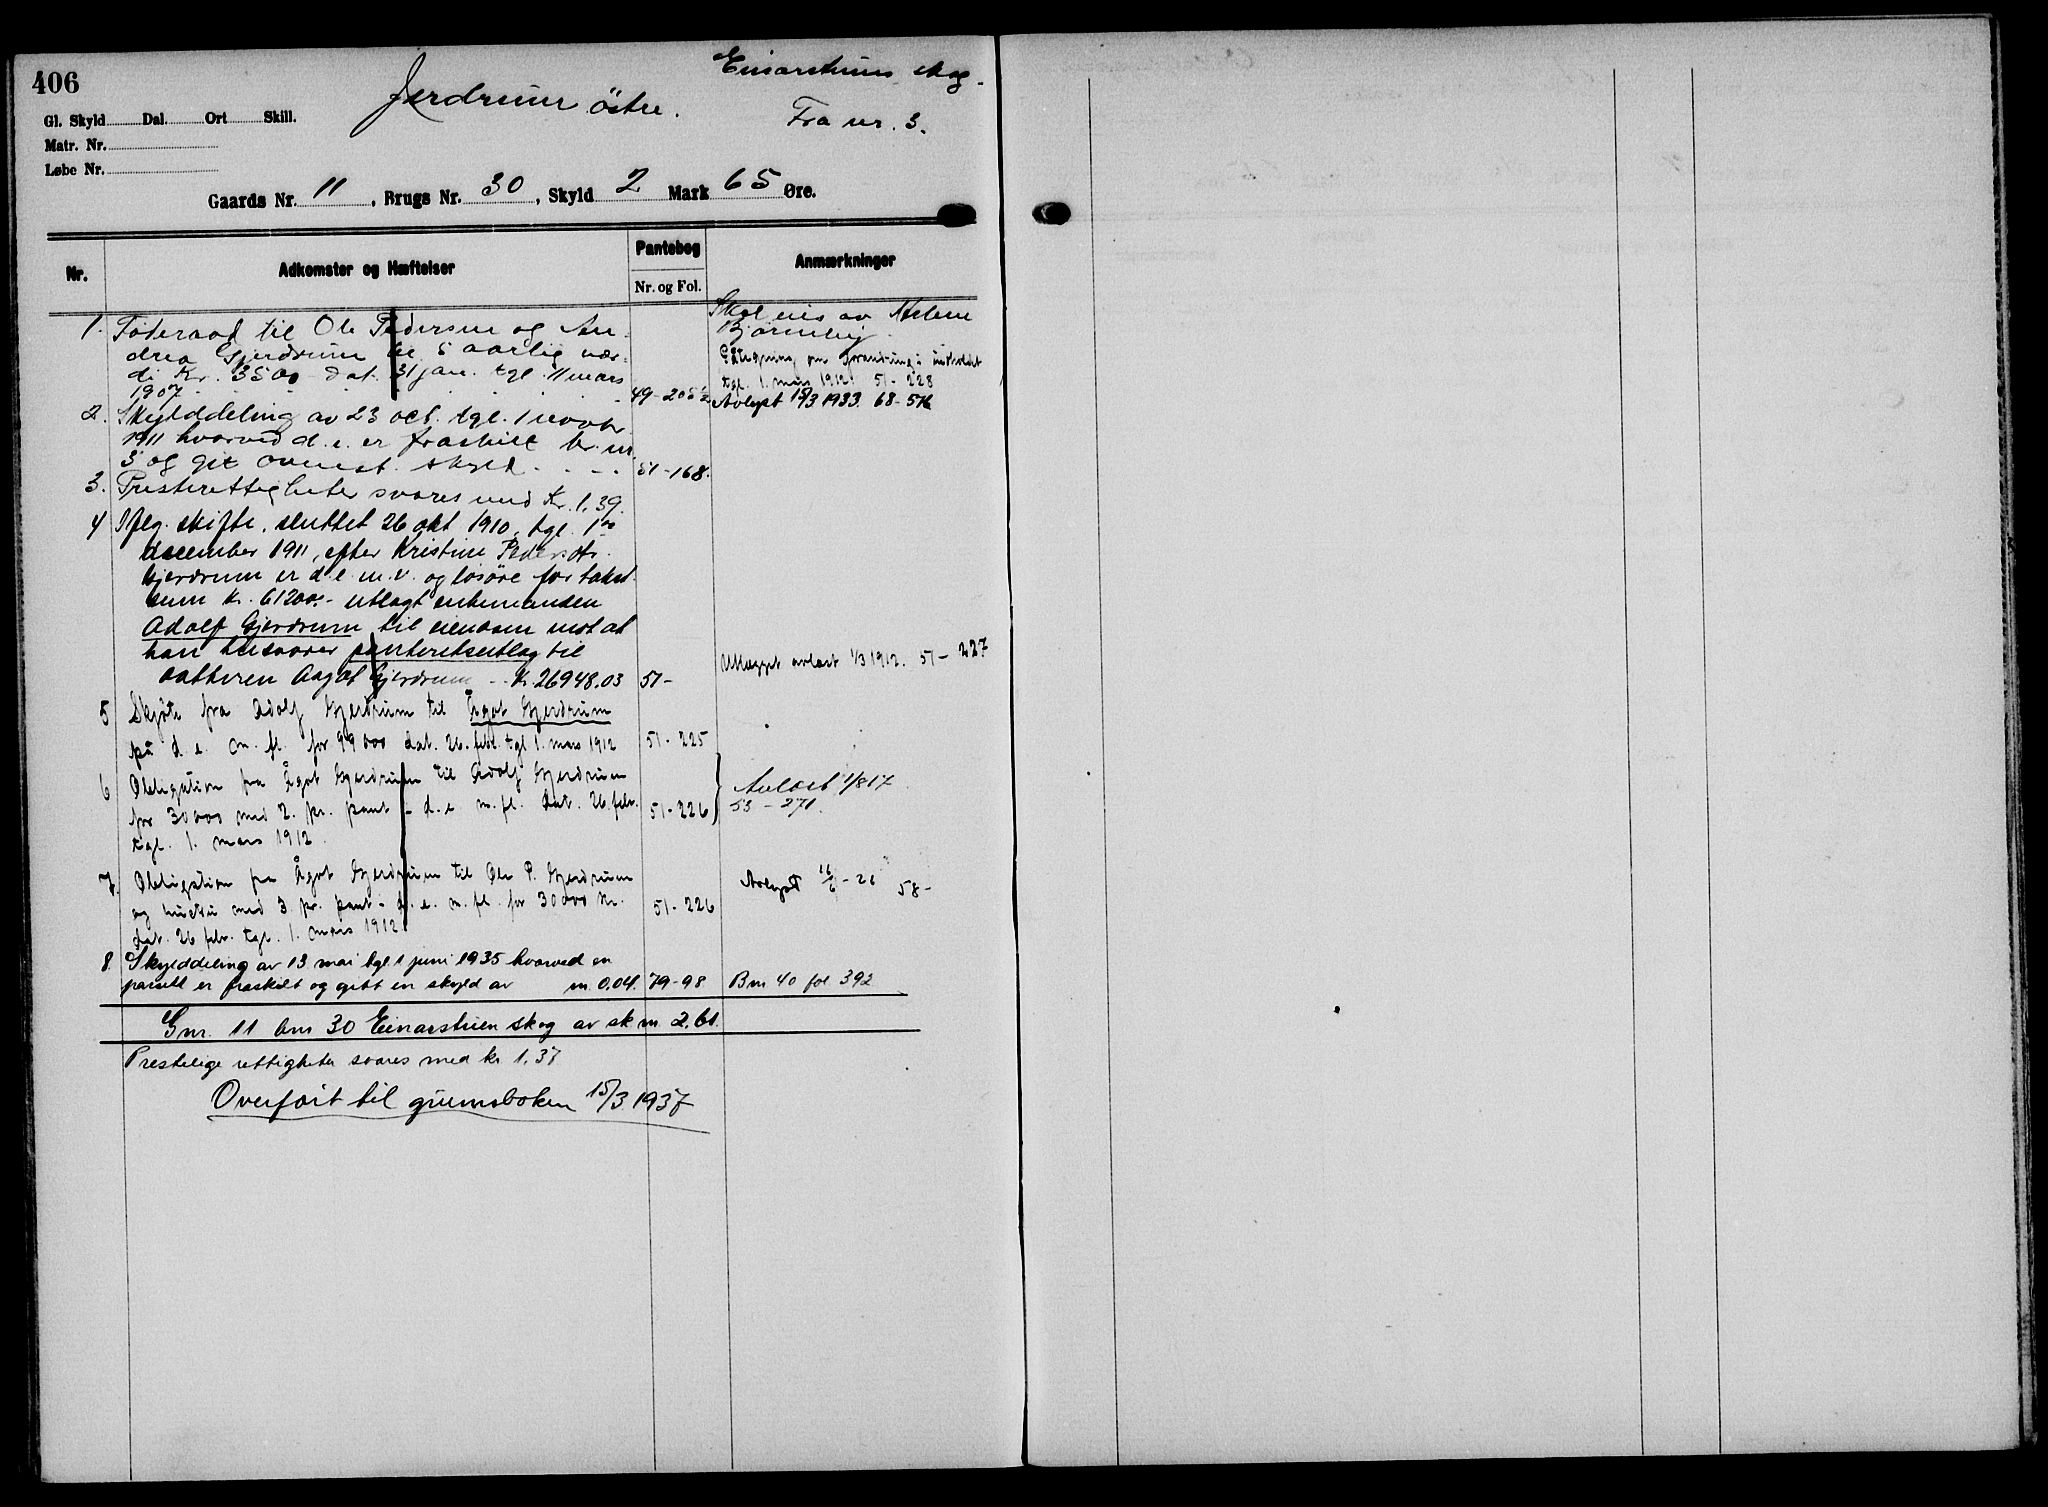 406
Gl. Skyld Dal. Ort Skill.
Matr. Nr.
Løbe Nr.
Jerdrum östre.
Einarstuens skog.
Fra nr. 3.
Gaards Nr. 11, Brugs Nr. 30, Skyld 2 Mark 65 Øre.
Nr.
Adkomster og Hæftelser
Pantebog
Nr. og Fol.
Anmærkninger
1. Föderaad til Ole Pedersen og An-
drea Gjerdrum 5 aarlig vær-
di Kr. 3500 dat. 31 jan. tgl. 11 mars
1907. 49-205
Skal eies av
Påtegning om forandring i indholdet
tgl. 1. mars 1912 51-228
Avlyst 15/3 1933. 68-576
2. Skylddeling av 23 oct. tgl. 1 novbr
1911 hvorved d. e. er fraskilt br. nr.
3 og git ovenst. skyld. 51-168.
3. Presterettigheter svares med Kr. 1,39.
4 Iflg. skifte, sluttet 26 okt 1910, tgl. 1ste
december 1911, efter Kristine Pedersdtr.
Gjerdrum er d. e. m. v. og lösöre for takst
sum kr. 61200.- utlagt enkemanden
Adolf Gjerdrum til eiendom mot at
han tilsvarer panteretsutlag til
datteren Aagot Gjerdrum - Kr. 26948.03 51-
Utlægget avlöst 1/3 1912. 51-227
5 Skjöte fra Adolf Gjerdrum til Ågot Gjerdrum
på d. e. m. fl. for 99 000 dat. 26. febr. tgl 1. mars 1912 51-225
6 Obligation fra Ågot Gjerdrum til Adolf Gjerdrum
for 30 000 med 2. pr. pant i d. e. m. fl. dat. 26. febr.
tgl. 1. mars 1912. 51-226
Avlöst 1/8 17
53-271.
7. Obligation fra Ågot Gjerdrum til Ole P. Gjerdrum
og hustru med 3. pr. pant i d. e. m. fl. for 30 000 kr.
dat. 26 febr. tgl. 1. mars 1912 51-226
Avlyst 16/6-26 58-
8. Skylddeling av 13 mai tgl. 1 juni 1935 hvorved en
parsell er fraskilt og gitt en skyld av m. 0.04. 79-98 Bnr 40 fol 392
Gnr. 11 bnr 30 Einarstuen skog av sk m. 2,61.
Prestelige rettigheter svares med kr 1.37
Overfört til grunnboken 15/3 1937